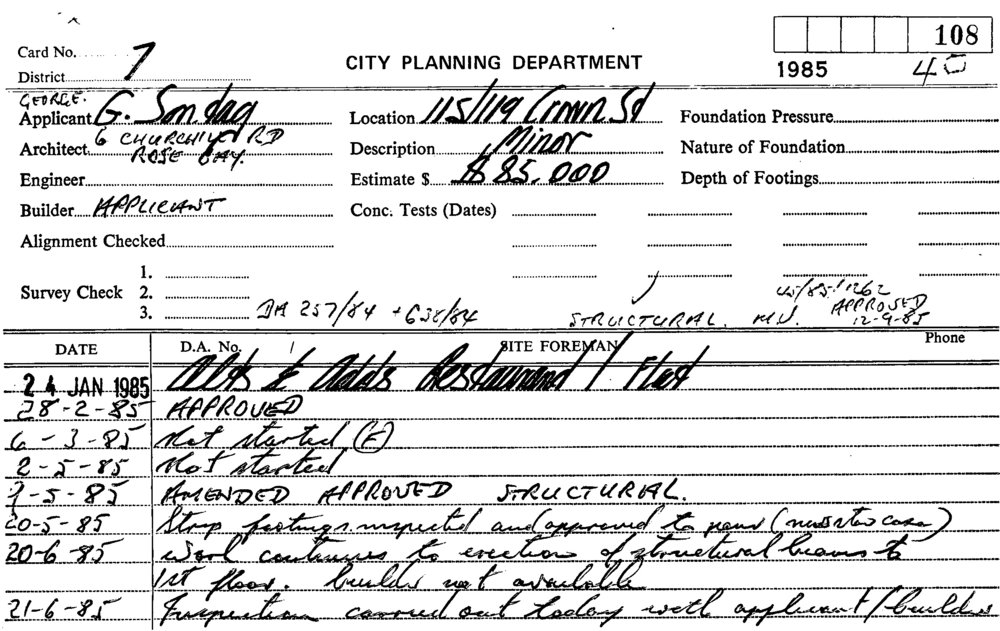 108
Card No. 7
CITY PLANNING DEPARTMENT
1985 45
District
GEORGE.
Applicant G. Sondag
Location 115/119 Crown St
Foundation Pressure
Architect 6 CHURCHILL RD
ROSE BAY.
Description Minor
Nature of Foundation
Engineer
Estimate $ $85,000
Depth of Footings
Builder APPLICANT
Conc. Tests (Dates)
Alignment Checked
1.
Survey Check 2.
3.
DA 257/84 + 638/84
STRUCTURAL.
45/85/1262
APPROVED
12-9-85
DATE D.A. No. SITE FOREMAN Phone
24 JAN 1985 Alts & Adds Restaurant / Flat
28-2-85 APPROVED
6-3-85 Not started (F)
2-5-85 Not started
7-5-85 AMENDED APPROVED STRUCTURAL.
20-5-85 Strip footings inspected and approved to pour
20-6-85 Work continues to erection of structural beams to
1st floor. builder not available
21-6-85 Inspection carried out today with applicant/builder